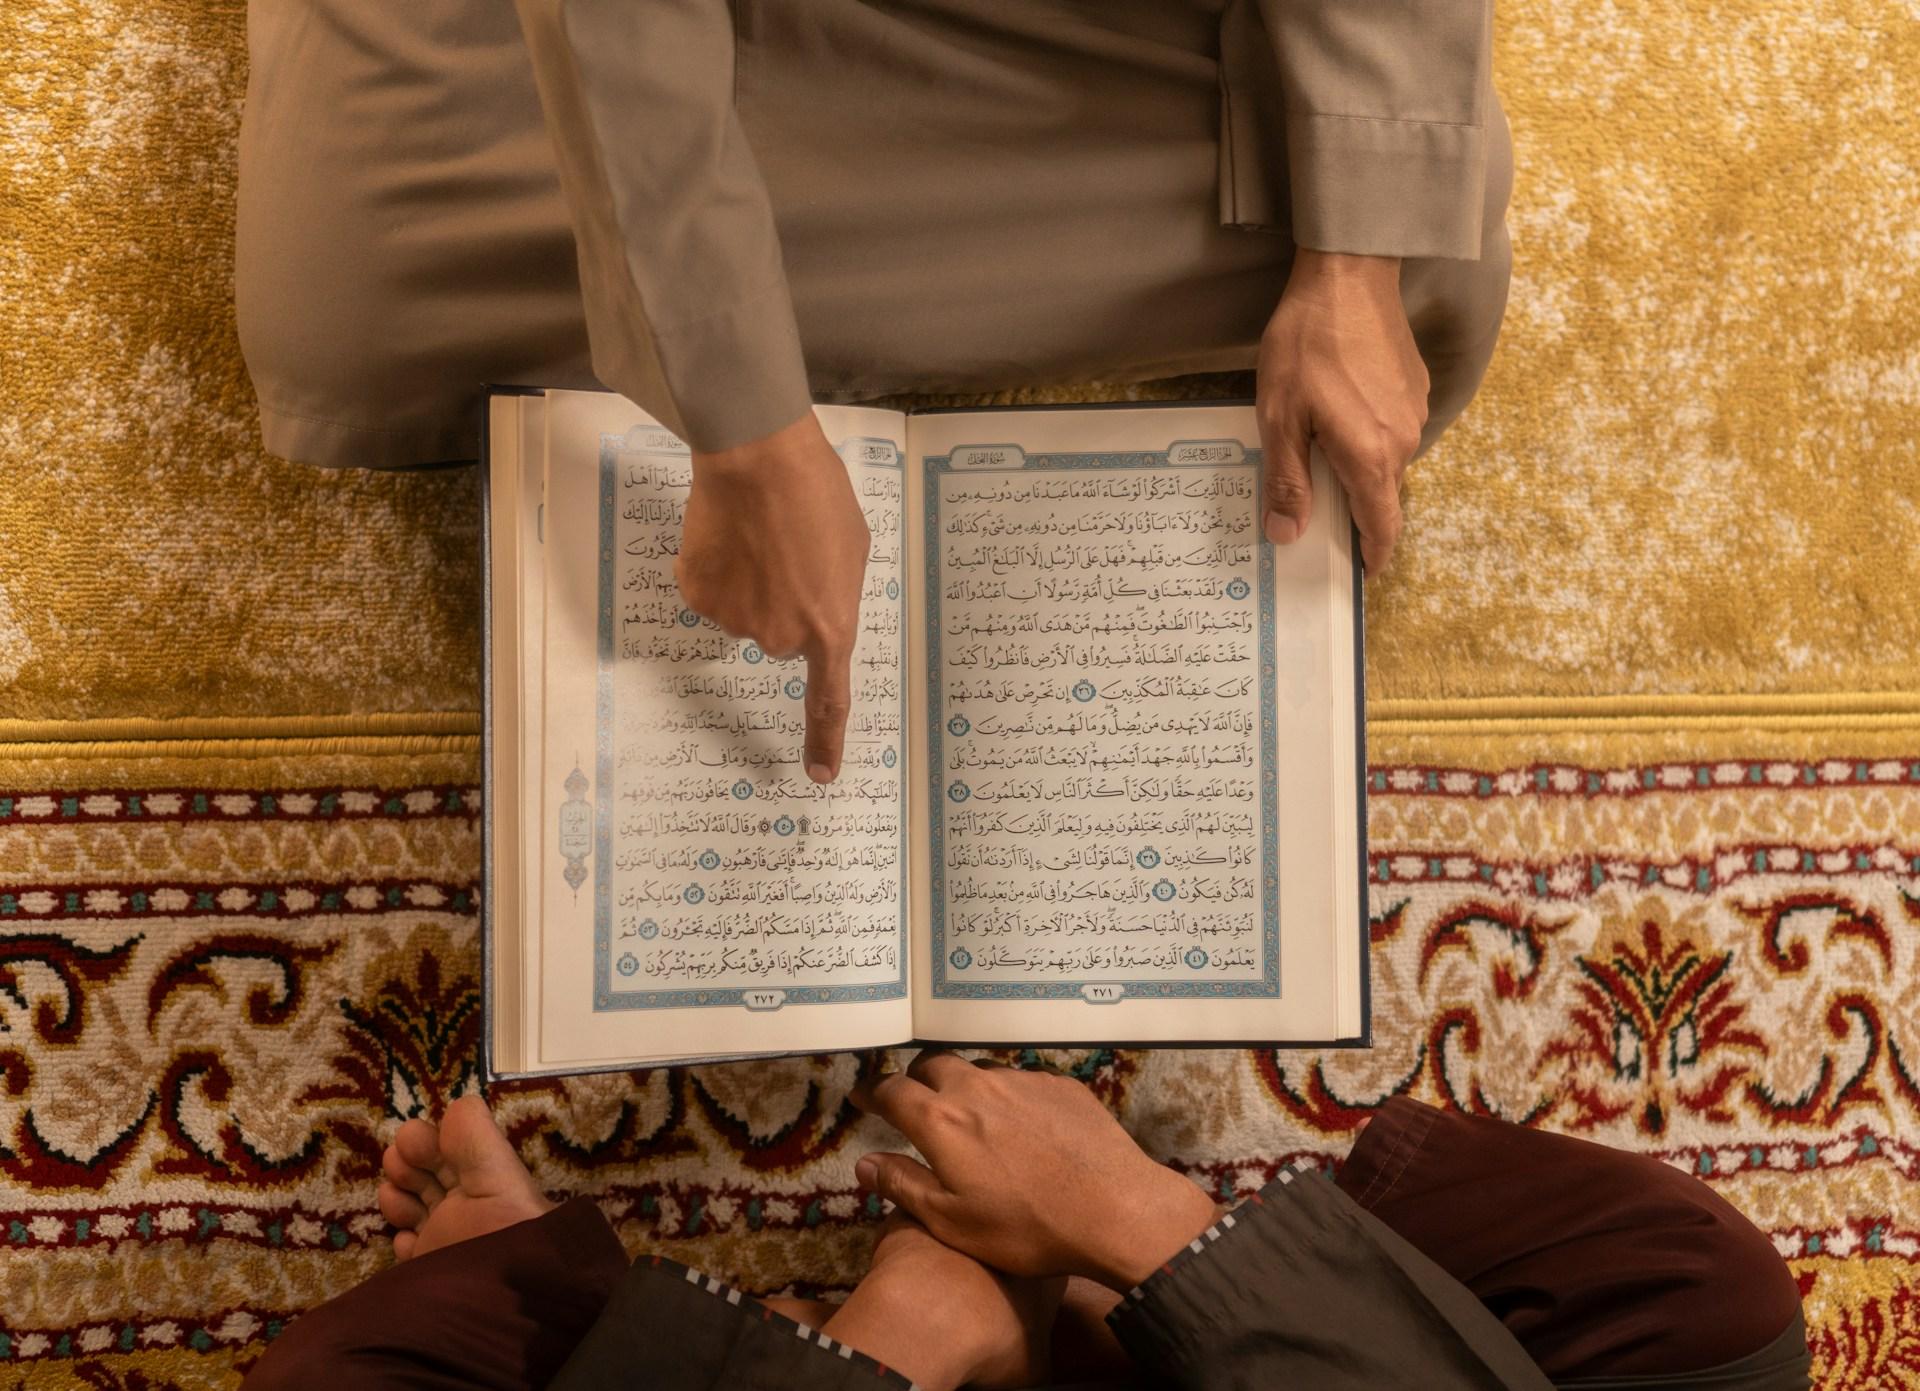 الجزء الرابع عشر
سورة النحل
وَقَالَ ٱلَّذِينَ أَشْرَكُوا۟ لَوْ شَآءَ ٱللَّهُ مَا عَبَدْنَا مِن دُونِهِۦ مِن
شَىْءٍ نَّحْنُ وَلَآ ءَابَآؤُنَا وَلَا حَرَّمْنَا مِن دُونِهِۦ مِن شَىْءٍ ۚ كَذَٰلِكَ
فَعَلَ ٱلَّذِينَ مِن قَبْلِهِمْ ۚ فَهَلْ عَلَى ٱلرُّسُلِ إِلَّا ٱلْبَلَٰغُ ٱلْمُبِينُ
٣٥ وَلَقَدْ بَعَثْنَا فِى كُلِّ أُمَّةٍ رَّسُولًا أَنِ ٱعْبُدُوا۟ ٱللَّهَ
وَٱجْتَنِبُوا۟ ٱلطَّٰغُوتَ ۖ فَمِنْهُم مَّنْ هَدَى ٱللَّهُ وَمِنْهُم مَّنْ
حَقَّتْ عَلَيْهِ ٱلضَّلَٰلَةُ ۚ فَسِيرُوا۟ فِى ٱلْأَرْضِ فَٱنظُرُوا۟ كَيْفَ
كَانَ عَٰقِبَةُ ٱلْمُكَذِّبِينَ ٣٦ إِن تَحْرِصْ عَلَىٰ هُدَىٰهُمْ
فَإِنَّ ٱللَّهَ لَا يَهْدِى مَن يُضِلُّ ۖ وَمَا لَهُم مِّن نَّٰصِرِينَ ٣٧
وَأَقْسَمُوا۟ بِٱللَّهِ جَهْدَ أَيْمَٰنِهِمْ ۙ لَا يَبْعَثُ ٱللَّهُ مَن يَمُوتُ ۚ بَلَىٰ
وَعْدًا عَلَيْهِ حَقًّا وَلَٰكِنَّ أَكْثَرَ ٱلنَّاسِ لَا يَعْلَمُونَ ٣٨
لِيُبَيِّنَ لَهُمُ ٱلَّذِى يَخْتَلِفُونَ فِيهِ وَلِيَعْلَمَ ٱلَّذِينَ كَفَرُوٓا۟ أَنَّهُمْ
كَانُوا۟ كَٰذِبِينَ ٣٩ إِنَّمَا قَوْلُنَا لِشَىْءٍ إِذَآ أَرَدْنَٰهُ أَن نَّقُولَ
لَهُۥ كُن فَيَكُونُ ٤٠ وَٱلَّذِينَ هَاجَرُوا۟ فِى ٱللَّهِ مِنۢ بَعْدِ مَا ظُلِمُوا۟
لَنُبَوِّئَنَّهُمْ فِى ٱلدُّنْيَا حَسَنَةً ۖ وَلَأَجْرُ ٱلْءَاخِرَةِ أَكْبَرُ ۚ لَوْ كَانُوا۟
يَعْلَمُونَ ٤١ ٱلَّذِينَ صَبَرُوا۟ وَعَلَىٰ رَبِّهِمْ يَتَوَكَّلُونَ ٤٢
٢٧١
سورة النحل
وَمَآ أَرْسَلْنَا فَسْـَٔلُوٓا۟ أَهْلَ
ٱلذِّكْرِ إِن وَأَنزَلْنَآ إِلَيْكَ
٤٤ ٱلْأَرْضَ
أَوْ يَأْتِيَهُمُ ٤٥ أَوْ يَأْخُذَهُمْ
فِى تَقَلُّبِهِمْ ٤٦ أَوْ يَأْخُذَهُمْ عَلَىٰ تَخَوُّفٍ فَإِنَّ
رَبَّكُمْ ٤٧ أَوَلَمْ يَرَوْا۟ إِلَىٰ مَا خَلَقَ ٱللَّهُ مِن
يَتَفَيَّؤُا۟ ظِلَٰلُهُۥ وَٱلشَّمَآئِلِ سُجَّدًا لِّلَّهِ وَهُمْ
٤٨ وَلِلَّهِ ٱلسَّمَٰوَٰتِ وَمَا فِى ٱلْأَرْضِ مِن دَآبَّةٍ
وَٱلْمَلَٰٓئِكَةُ وَهُمْ لَا يَسْتَكْبِرُونَ ٤٩ يَخَافُونَ رَبَّهُم مِّن فَوْقِهِمْ
وَيَفْعَلُونَ مَا يُؤْمَرُونَ ۩ ٥٠ ۞ وَقَالَ ٱللَّهُ لَا تَتَّخِذُوٓا۟ إِلَٰهَيْنِ
ٱثْنَيْنِ ۖ إِنَّمَا هُوَ إِلَٰهٌ وَٰحِدٌ ۖ فَإِيَّٰىَ فَٱرْهَبُونِ ٥١ وَلَهُۥ مَا فِى ٱلسَّمَٰوَٰتِ
وَٱلْأَرْضِ وَلَهُ ٱلدِّينُ وَاصِبًا ۚ أَفَغَيْرَ ٱللَّهِ تَتَّقُونَ ٥٢ وَمَا بِكُم مِّن
نِّعْمَةٍ فَمِنَ ٱللَّهِ ۖ ثُمَّ إِذَا مَسَّكُمُ ٱلضُّرُّ فَإِلَيْهِ تَجْـَٔرُونَ ٥٣ ثُمَّ
إِذَا كَشَفَ ٱلضُّرَّ عَنكُمْ إِذَا فَرِيقٌ مِّنكُم بِرَبِّهِمْ يُشْرِكُونَ ٥٤
٢٧٢